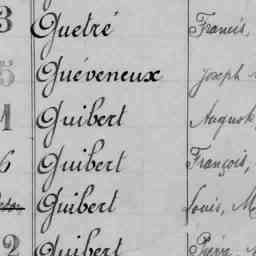 3 Guetré Francis,
5 Guéveneux Joseph
1 Guibert August
6 Guibert François,
Guibert Louis, M
2 Guibert Pierre